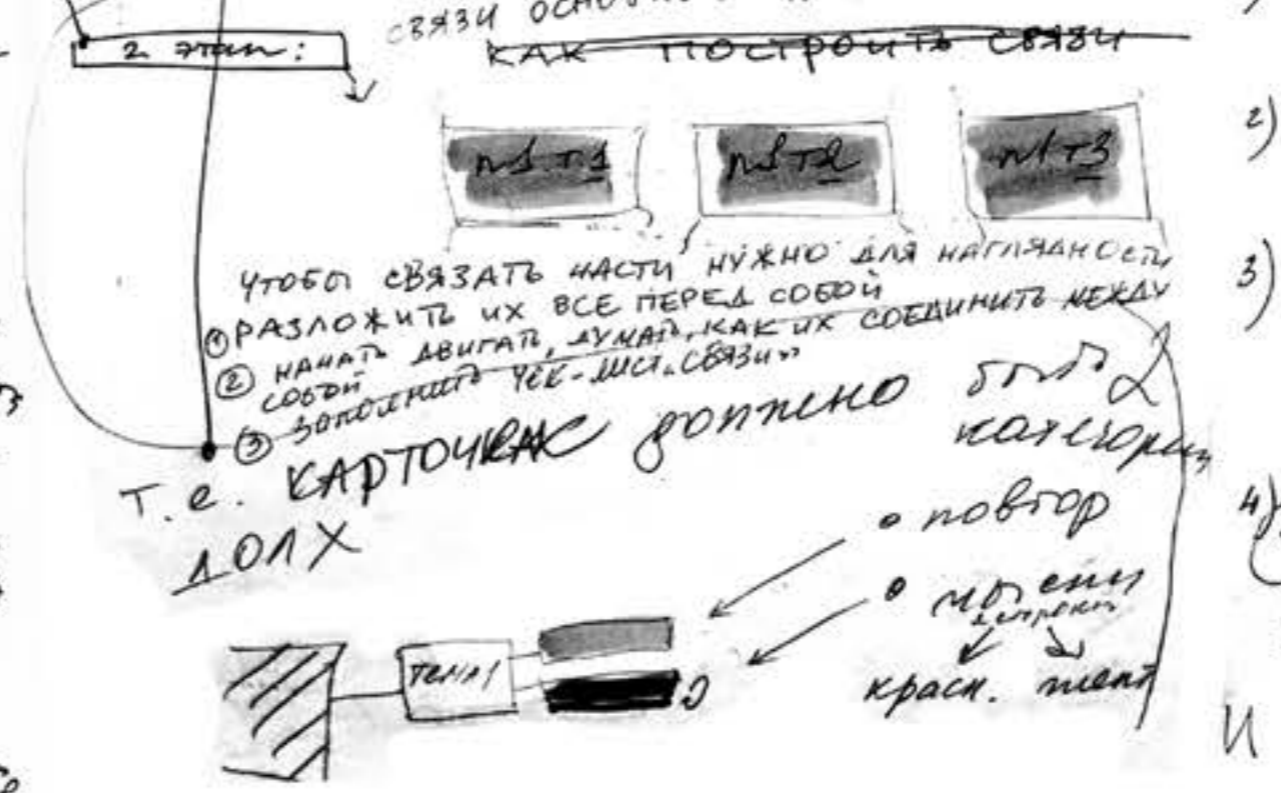 СВЯЗИ
2 этап:
КАК ПОСТРОИТЬ СВЯЗИ
2)
п1 т1
п1 т2
п1 т3
ЧТОБЫ СВЯЗАТЬ ЧАСТИ НУЖНО ДЛЯ НАГЛЯДНОСТИ
① РАЗЛОЖИТЬ ИХ ВСЕ ПЕРЕД СОБОЙ
3)
② НАЧАТЬ ДВИГАТЬ, ДУМАТЬ, КАК ИХ СОЕДИНИТЬ МЕЖДУ
СОБОЙ
③ ЗАПОЛНИТЬ ЧЕК-ЛИСТ "СВЯЗИ"
Т.е. КАРТОЧКАС должно быть 2
категории
ДОЛХ
4)
• повтор
•
красн.
ТЕМА 1
И